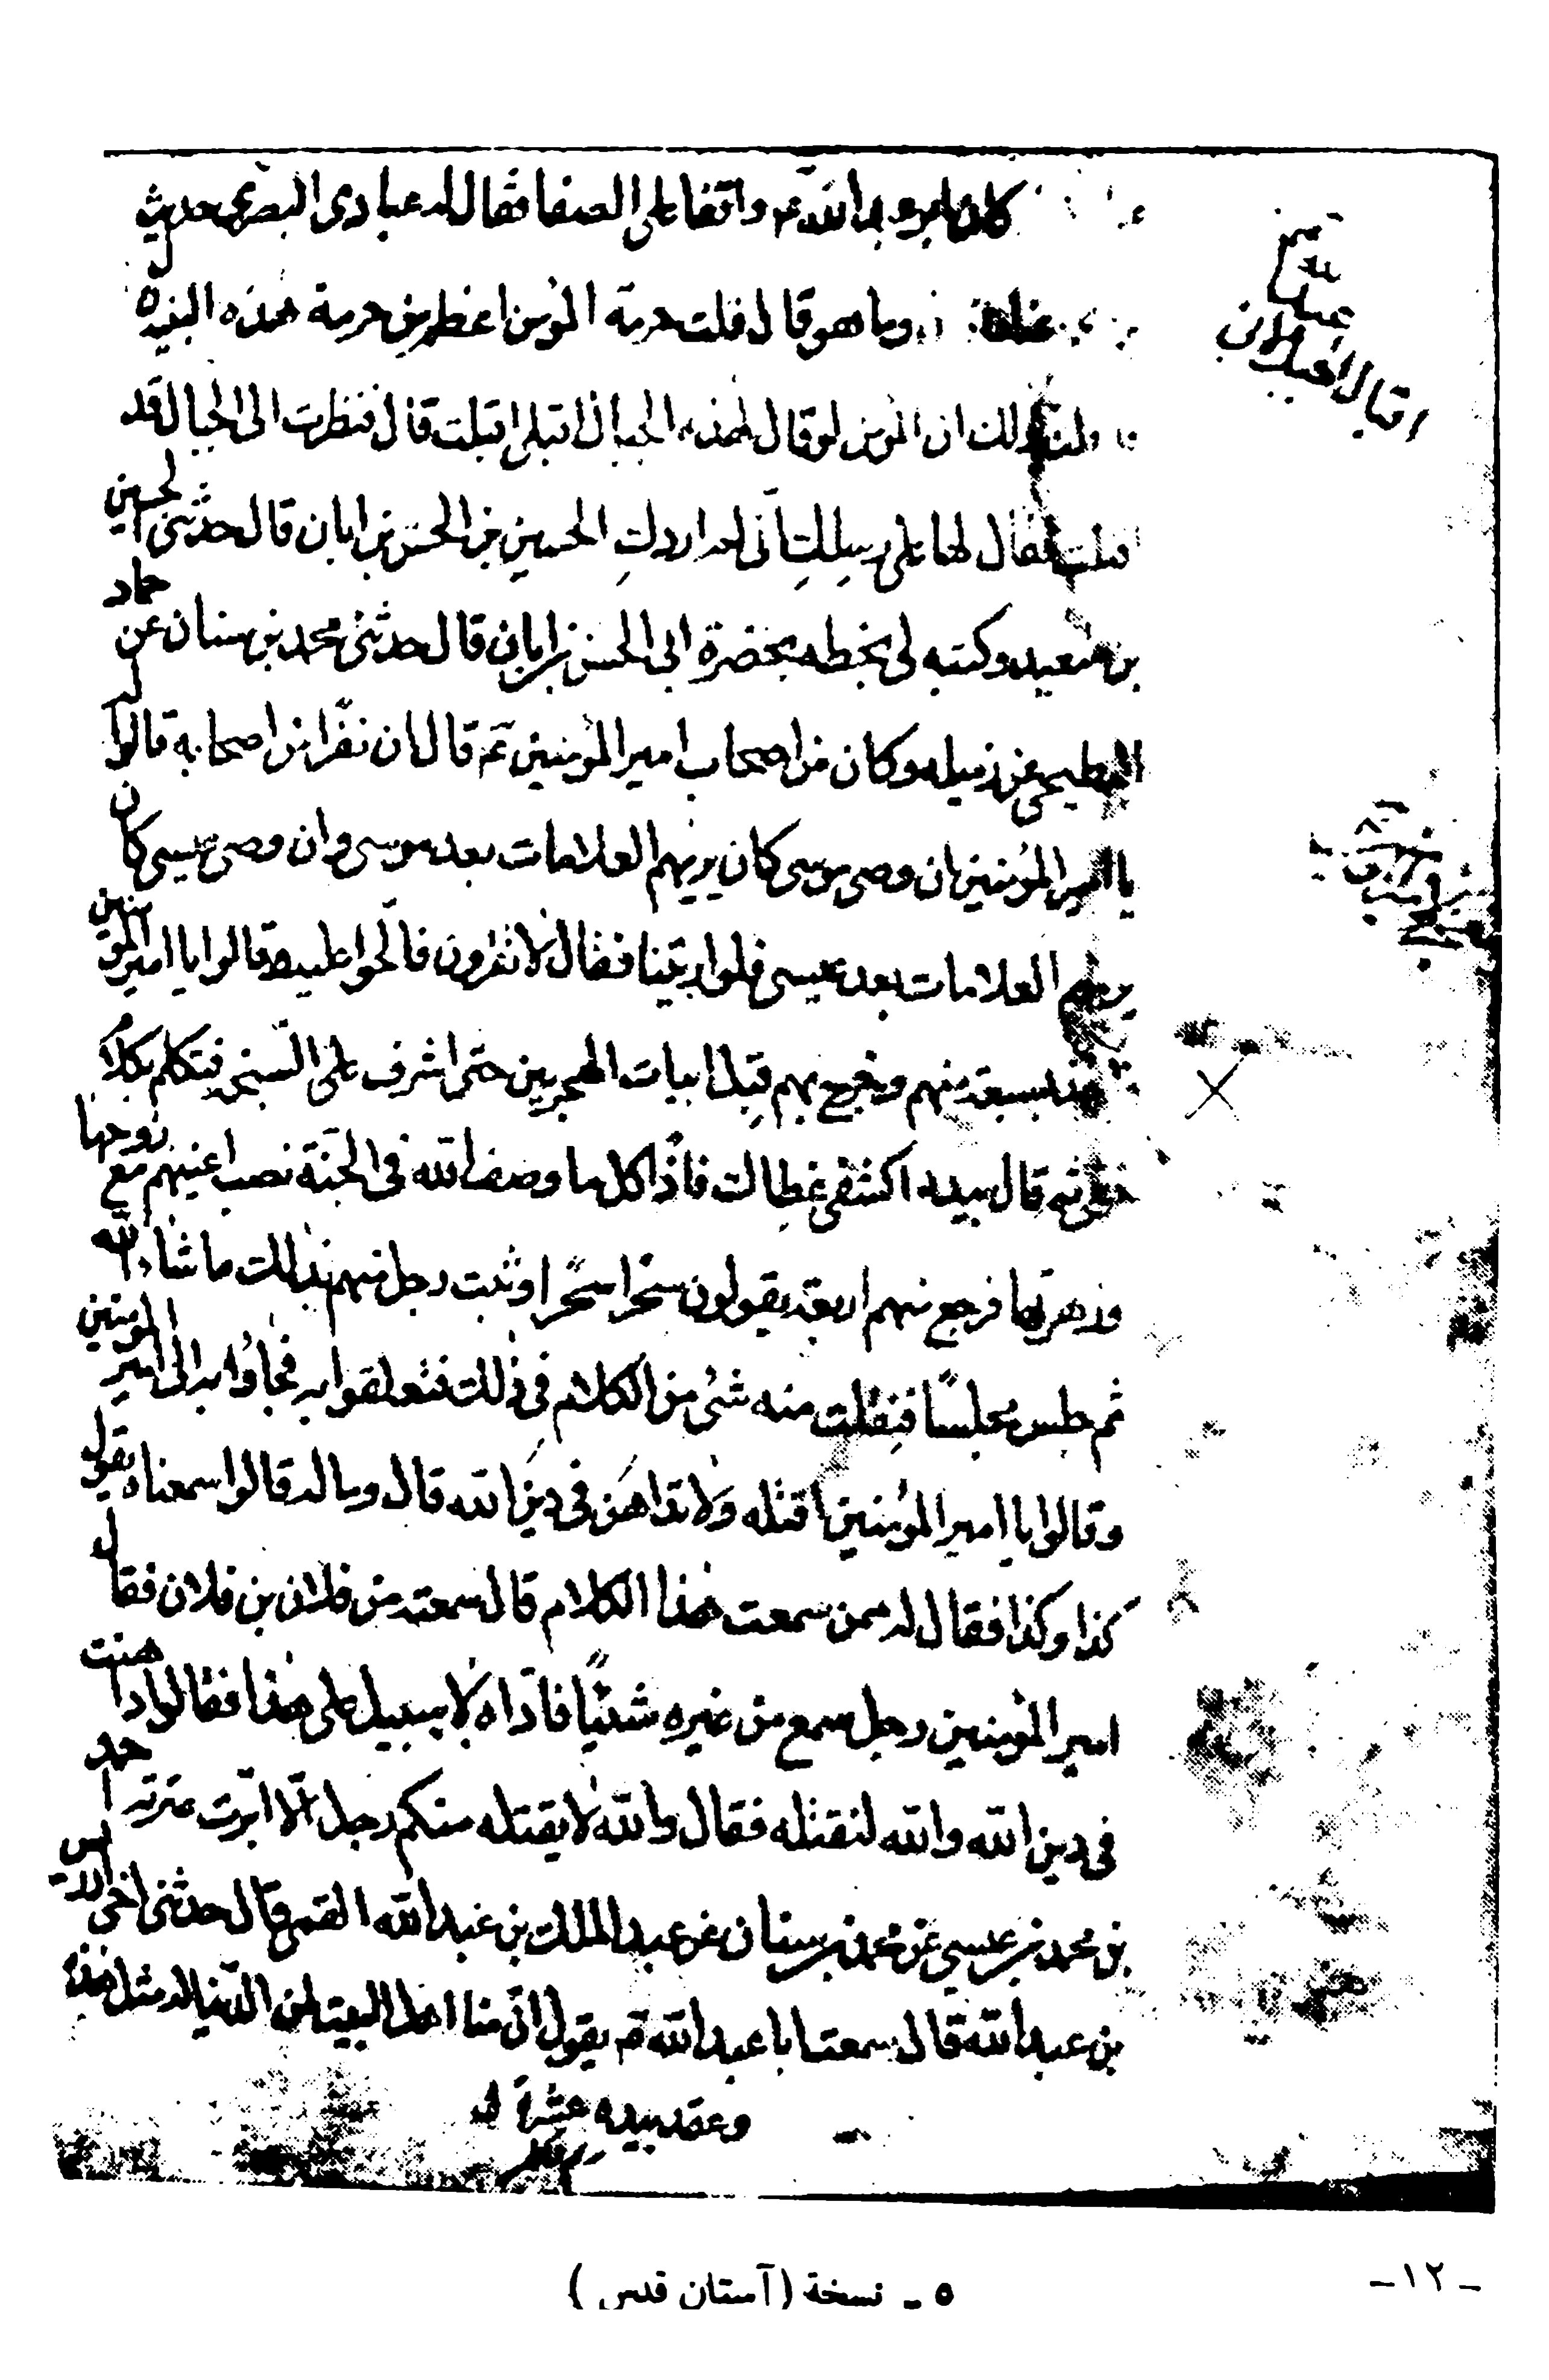 كان ابو عبد الله عم واقفا على الصفا فقال له عبادى البصرى حديث
وما هو قال قلت حرمة المؤمن اعظم من حرمة هذه البنية
ان المؤمن لو قال لهذه الجبال اقبلى اقبلت قال فنظرت الى الجبال قد
اقبلت فقال لها على رسلك انى لم اردك الحسين بن الحسن بن ابان قال حدثنى الحسين
بن سعيد وكتبه لى بخطه بحضرة ابى الحسن بن ابان قال حدثنى محمد بن سنان عن حماد
البطيحى عن زميله وكان من اصحاب امير المؤمنين عم قال ان نفرا من اصحابه قالوا
يا امير المؤمنين ان وصى موسى كان يريهم العلامات بعد موسى وان وصى عيسى كان
يريهم العلامات بعد عيسى فلو اريتنا فقال لا تقرون فالحوا عليه وقالوا يا امير المؤمنين
بسبعة منهم وخرج بهم قبل ابيات الهجريين حتى اشرف على السبخة فتكلم بكلام
خفى ثم قال بيده اكشفى غطاك فاذا كل ما وصف الله فى الجنة نصب اعينهم مع روحها
وزهرتها فرجع منهم اربعة يقولون سحرا سحرا وثبت رجل منهم بذلك ما شاء الله
ثم جلس مجلسا فنقلت منه شئ من الكلام فى ذلك فتعلقوا به فجاؤا به الى امير المؤمنين
وقالوا يا امير المؤمنين اقتله ولا تداهن فى دين الله قال وما له قالوا سمعناه يقول
كذا وكذا فقال له ممن سمعت هذا الكلام قال سمعته من فلان بن فلان فقال
امير المؤمنين رجل سمع من غيره شيئا فاداه لا سبيل على هذا فقالوا داهنت
فى دين الله والله لنقتله فقال والله لا يقتله منكم رجل الا ابرت عترته احمد
بن محمد بن عيسى عن محمد بن سنان عن عبد الملك بن عبد الله القمى قال حدثنى اخى ادريس
بن عبد الله قال سمعت ابا عبد الله عم يقول ان منا اهل البيت لمن الدنيا له مثل هذه
وعقد بيده عشرة
٥ - نسخة (آستان قدس)
- ١٢ -